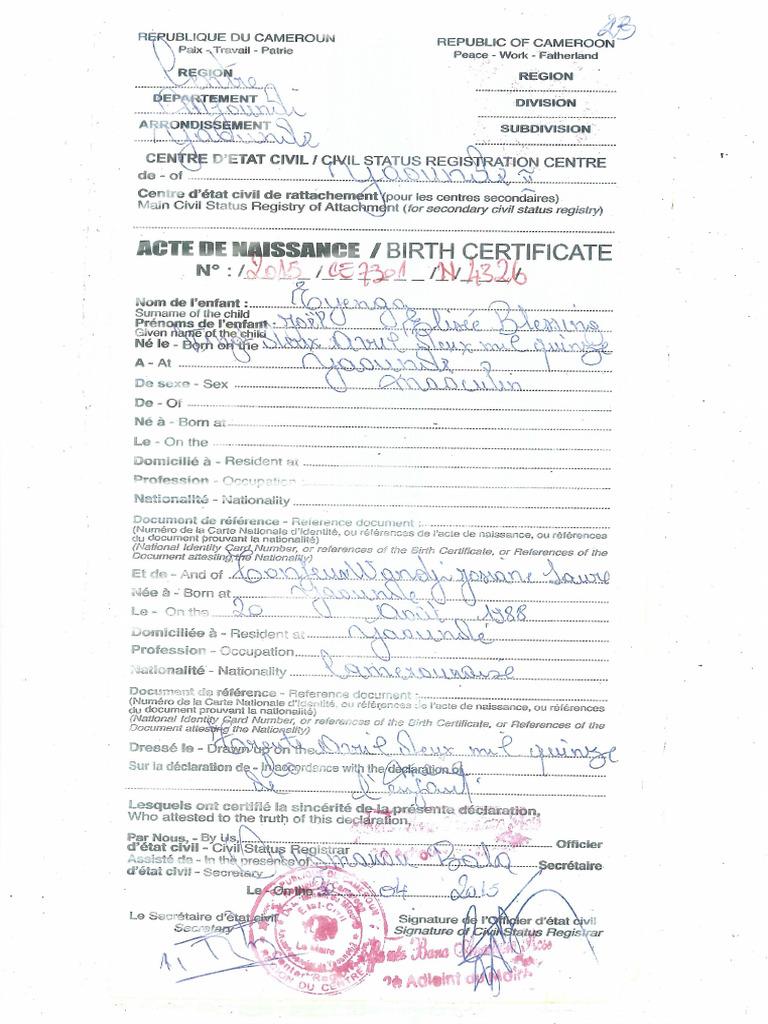 23
REPUBLIQUE DU CAMEROUN
Paix - Travail - Patrie
REPUBLIC OF CAMEROON
Peace - Work - Fatherland
REGION Centre
REGION
DEPARTEMENT Mfoundi
DIVISION
ARRONDISSEMENT Yaoundé
SUBDIVISION
CENTRE D'ETAT CIVIL / CIVIL STATUS REGISTRATION CENTRE
de - of Yaoundé II
Centre d'état civil de rattachement (pour les centres secondaires)
Main Civil Status Registry of Attachment (for secondary civil status registry)
ACTE DE NAISSANCE / BIRTH CERTIFICATE
N° : /2015/CE7301/N/4326
Nom de l'enfant : Eyenga
Surname of the child
Prénoms de l'enfant : Joël Elisée Blessing
Given name of the child
Né le - Born on the Vingt deux Avril deux mil quinze
A - At Yaoundé 2
De sexe - Sex masculin
De - Of
Né à - Born at
Le - On the
Domicilié à - Resident at
Profession - Occupation :
Nationalité - Nationality
Document de référence - Reference document :
(Numéro de la Carte Nationale d'Identité, ou références de l'acte de naissance, ou références
du document prouvant la nationalité)
(National Identity Card Number, or references of the Birth Certificate, or References of the
Document attesting the Nationality)
Et de - And of Wandji Josiane Laure
Née à - Born at Yaoundé
Le - On the 20 Août 1988
Domiciliée à - Resident at Yaoundé
Profession - Occupation
Nationalité - Nationality Camerounaise
Document de référence - Reference document :
(Numéro de la Carte Nationale d'Identité, ou références de l'acte de naissance, ou références
du document prouvant la nationalité)
(National Identity Card Number, or references of the Birth Certificate, or References of the
Document attesting the Nationality)
Dressé le - Drawn up on the trente Avril deux mil quinze
Sur la déclaration de - In accordance with the declaration of
de l'enfant
Lesquels ont certifié la sincérité de la présente déclaration,
Who attested to the truth of this declaration,
Par Nous, - By Us, Officier
d'état civil - Civil Status Registrar
Assisté de - In the presence of Bala Secrétaire
d'état civil - Secretary
Le - On the 30 04 2015
Le Secrétaire d'état civil
Secretary
Signature de l'Officier d'état civil
Signature of Civil Status Registrar
REPUBLIQUE DU CAMEROUN
Etat-Civil
Le Maire
REGION DU CENTRE
2è Adjoint au Maire